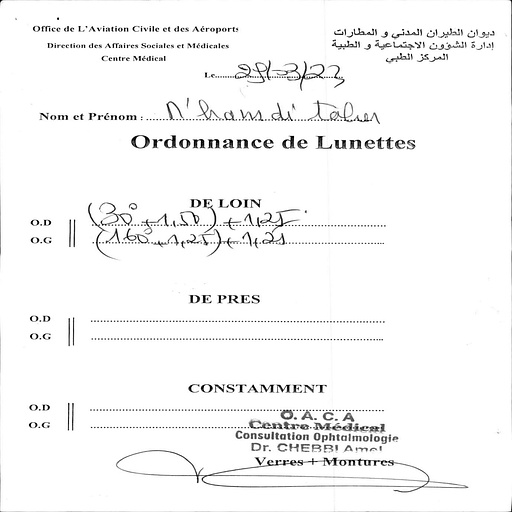 Office de L'Aviation Civile et des Aéroports
Direction des Affaires Sociales et Médicales
Centre Médical
ديوان الطيران المدني و المطارات
إدارة الشؤون الاجتماعية و الطبية
المركز الطبي
Le 29/03/23
Nom et Prénom : M'hamdi taher
Ordonnance de Lunettes
DE LOIN
O.D (30° +1,50) +1,25
O.G (160° +1,25) +1,25
DE PRES
O.D
O.G
CONSTAMMENT
O.D
O.G
O. A. C. A
Centre Médical
Consultation Ophtalmologie
Dr. CHEBBI Amel
Verres + Montures